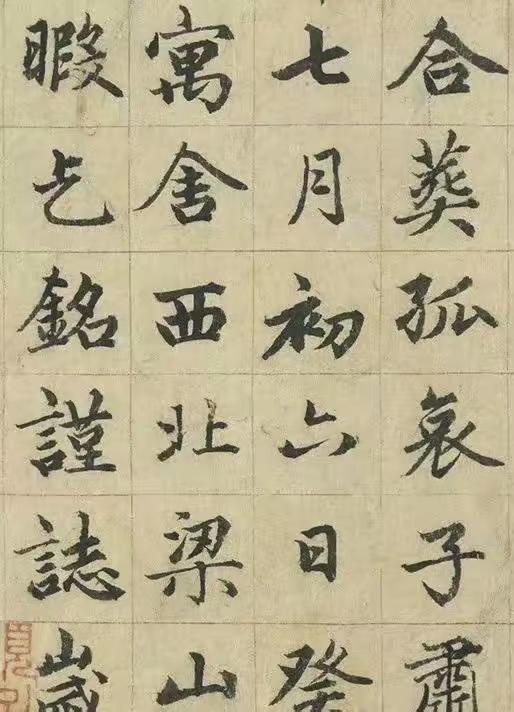 合葬孤哀子肅
七月初六日癸
寓舍西北梁山
暇乞銘謹誌歲